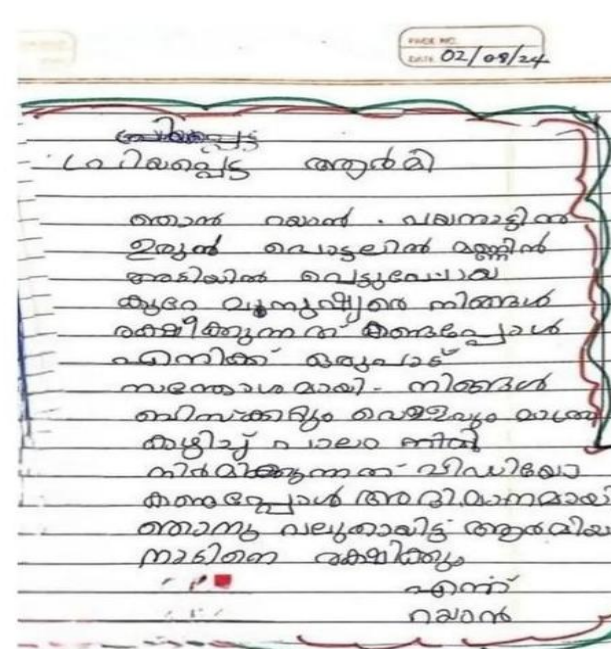 PAGE NO.
DATE 02/08/24
പ്രിയപ്പെട്ട ആർമി
ഞാൻ റയാൻ. വയനാട്ടിൽ
ഉരുൾ പൊട്ടലിൽ മണ്ണിൻ
അടിയിൽ പെട്ടുപോയ
കുറേ മനുഷ്യരെ നിങ്ങൾ
രക്ഷിക്കുന്നത് കണ്ടപ്പോൾ
എനിക്ക് ഒരുപാട്
സന്തോശമായി. നിങ്ങൾ
ബിസ്ക്കറ്റും വെള്ളവും മാത്രം
കഴിച്ച് പാലം
നിർമിക്കുന്നത് വീഡിയോ
കണ്ടപ്പോൾ അഭിമാനമായി
ഞാനു വലുതായിട്ട് ആർമിയാ
നാടിനെ രക്ഷിക്കും
എന്ന്
റയാൻ